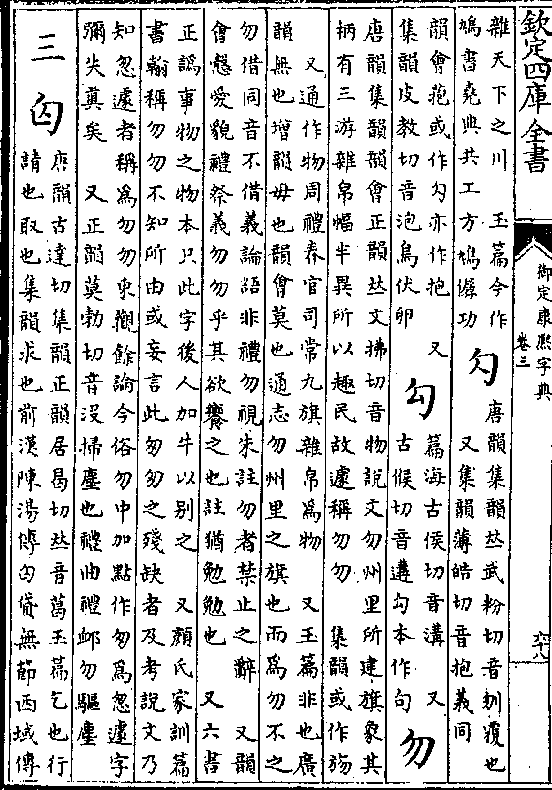 欽定四庫全書
御定康熙字典
卷三
六十八
雜天下之川 玉篇今作
鳩書堯典共工方鳩僝功
勽
唐韻集韻𠀤武粉切音刎覆也
又集韻薄皓切音抱義同
韻會菢或作勽亦作抱 又
集韻皮教切音泡鳥伏卵
勾
篇海古侯切音溝 又
古候切音遘勾本作句
勿
唐韻集韻韻會正韻𠀤文拂切音物說文勿州里所建旗象其
柄有三游雜帛幅半異所以趣民故遽稱勿勿 集韻或作𣃦
又通作物周禮春官司常九旗雜帛爲物 又玉篇非也廣
韻無也增韻毋也韻會莫也通志勿州里之旗也而爲勿不之
勿借同音不借義論語非禮勿視朱註勿者禁止之辭 又韻
會慤愛貌禮祭義勿勿乎其欲饗之也註猶勉勉也 又六書
正譌事物之物本只此字後人加牛以別之 又顏氏家訓篇
書翰稱勿勿不知所由或妄言此匆匆之殘缺者及考說文乃
知忽遽者稱爲勿勿東觀餘論今俗勿中加點作匆爲忽遽字
彌失眞矣 又正韻莫勃切音沒掃塵也禮曲禮卹勿驅塵
三 匃
唐韻古達切集韻正韻居曷切𠀤音葛玉篇乞也行
請也取也集韻求也前漢陳湯傳匃貸無節西域傳